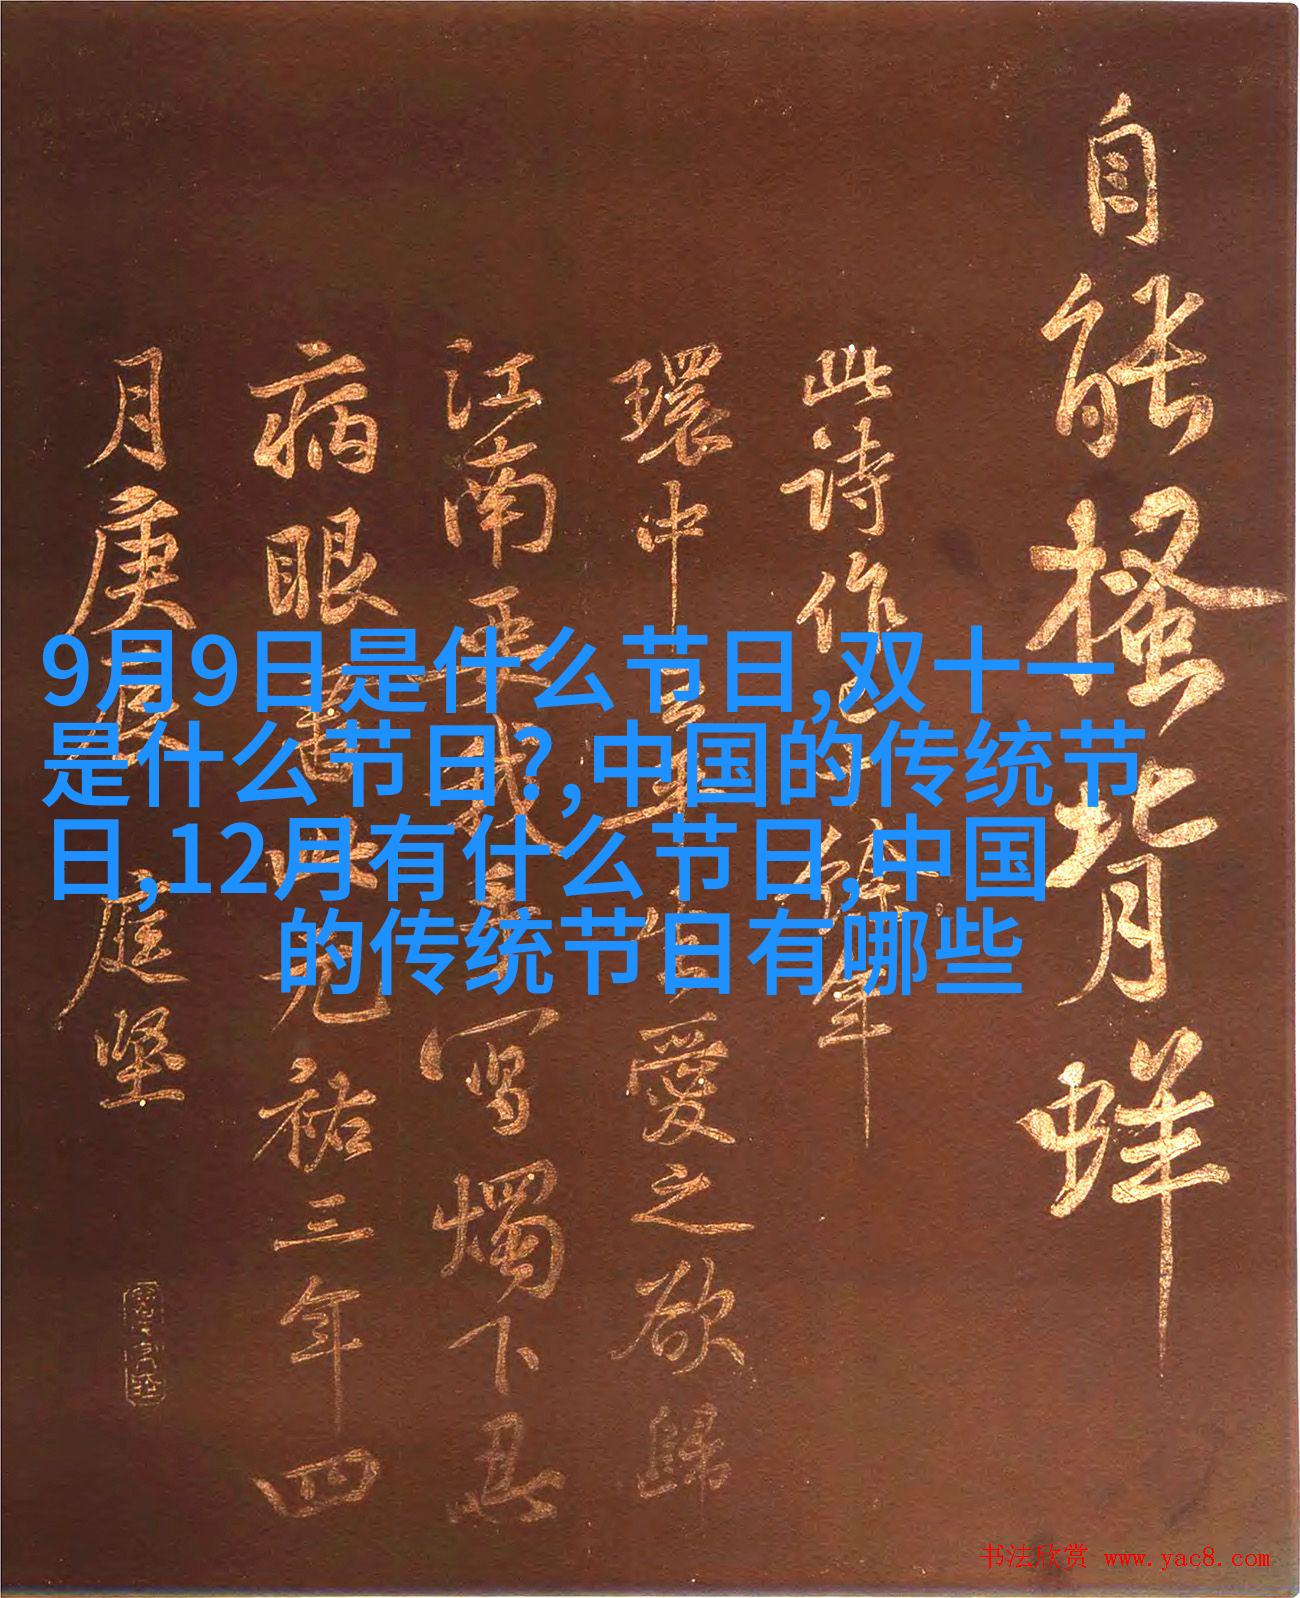 自能搔背蛘
此诗作
環中
愛之欲歸
江南
写燭下忍
病眼
祐三年四
月庚辰
庭堅
9月9日是什么节日,双十一
是什么节日?,中国的传统节
日,12月有什么节日,中国
的传统节日有哪些
书法欣赏 www.yac8.com